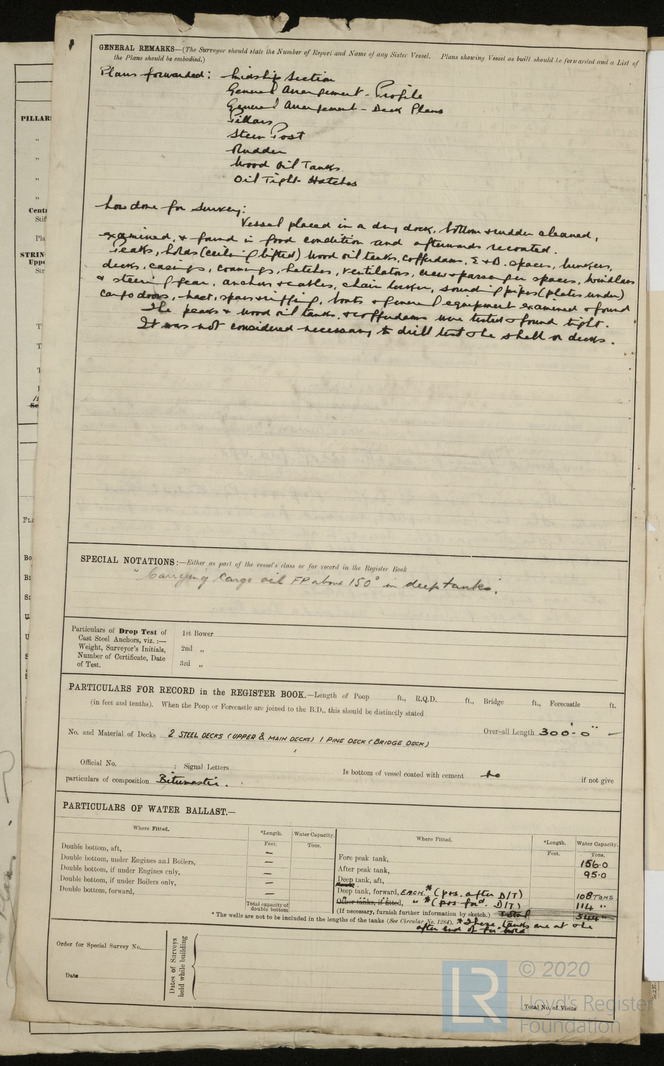 GENERAL REMARKS—(The Surveyor should state the Number of Report and Name of any Sister Vessel. Plans showing Vessel as built should be forwarded and a List of
the Plans should be embodied.)
Plans forwarded: Midship Section
General Arrangement - Profile
General Arrangement - Deck Plans
Pillars
Stern Post
Rudder
Wood Oil Tanks
Oil Tight Hatches
Now done for Survey:
Vessel placed in a dry dock, bottom & rudder cleaned,
examined, & found in good condition and afterwards recoated.
Peaks, holds (ceiling lifted) wood oil tanks, cofferdams, E & B. spaces, bunkers,
decks, casings, coamings, hatches, ventilators, crew & passenger spaces, windlass
& steering gear, anchors & cables, chain locker, sounding pipes (plates under)
cargo doors, mast, spars & rigging, boats & general equipment examined & found
The peaks & wood oil tanks, & cofferdams were tested & found tight.
It was not considered necessary to drill test the shell or decks.
SPECIAL NOTATIONS:—Either as part of the vessel's class or for record in the Register Book
"Carrying cargo oil FP above 150° in deep tanks".
Particulars of Drop Test of
Cast Steel Anchors, viz.:—
Weight, Surveyor's Initials,
Number of Certificate, Date
of Test.
1st Bower
2nd "
3rd "
PARTICULARS FOR RECORD in the REGISTER BOOK.—Length of Poop ft., R.Q.D. ft., Bridge ft., Forecastle ft.
(in feet and tenths). When the Poop or Forecastle are joined to the B.D., this should be distinctly stated
No. and Material of Decks 2 STEEL DECKS (UPPER & MAIN DECKS) 1 PINE DECK (BRIDGE DECK) Over-all Length 300'-0"
Official No. ; Signal Letters Is bottom of vessel coated with cement No if not give
particulars of composition Bitumastic.
PARTICULARS OF WATER BALLAST.—
Where Fitted. *Length. Water Capacity. Where Fitted. *Length. Water Capacity.
Feet. Tons. Feet. Tons.
Double bottom, aft, — Fore peak tank, 156.0
Double bottom, under Engines and Boilers, — After peak tank, 95.0
Double bottom, if under Engines only, — Deep tank, aft,
Double bottom, if under Boilers only, — Deep tank, forward, EACH * (pos. after D/T) 108 TONS
Double bottom, forward, — Other tanks, if fitted, " * (pos. for'd. D/T) 114 "
Total capacity of double bottom (If necessary, furnish further information by sketch.)
* The wells are not to be included in the lengths of the tanks (See Circular No. 1284). * These tanks are at the
after end of for hold
Order for Special Survey No.
Date
Dates of Surveys held while building
Total No. of Visits
LR
© 2020
Lloyd's Register
Foundation